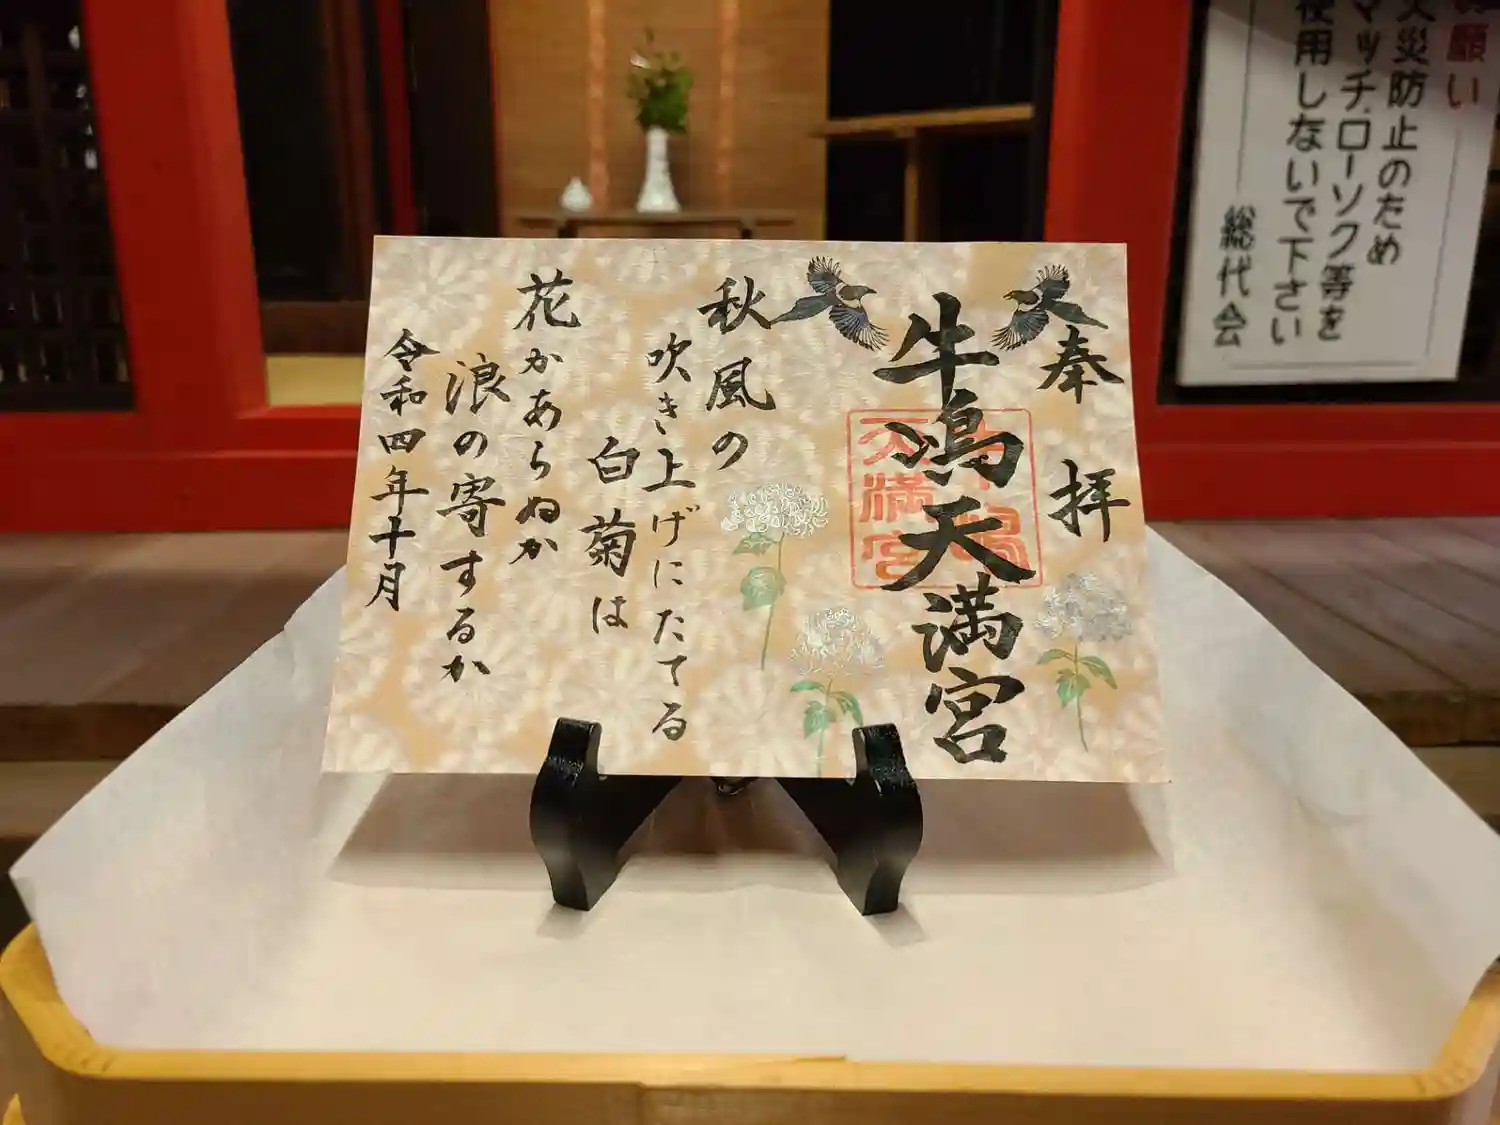 奉拝
牛嶋天満宮
秋風の
吹き上げにたてる
白菊は
花かあらぬか
浪の寄するか
令和四年十月
願い
火災防止のため
マッチ.ローソク等を
使用しないで下さい
総代会